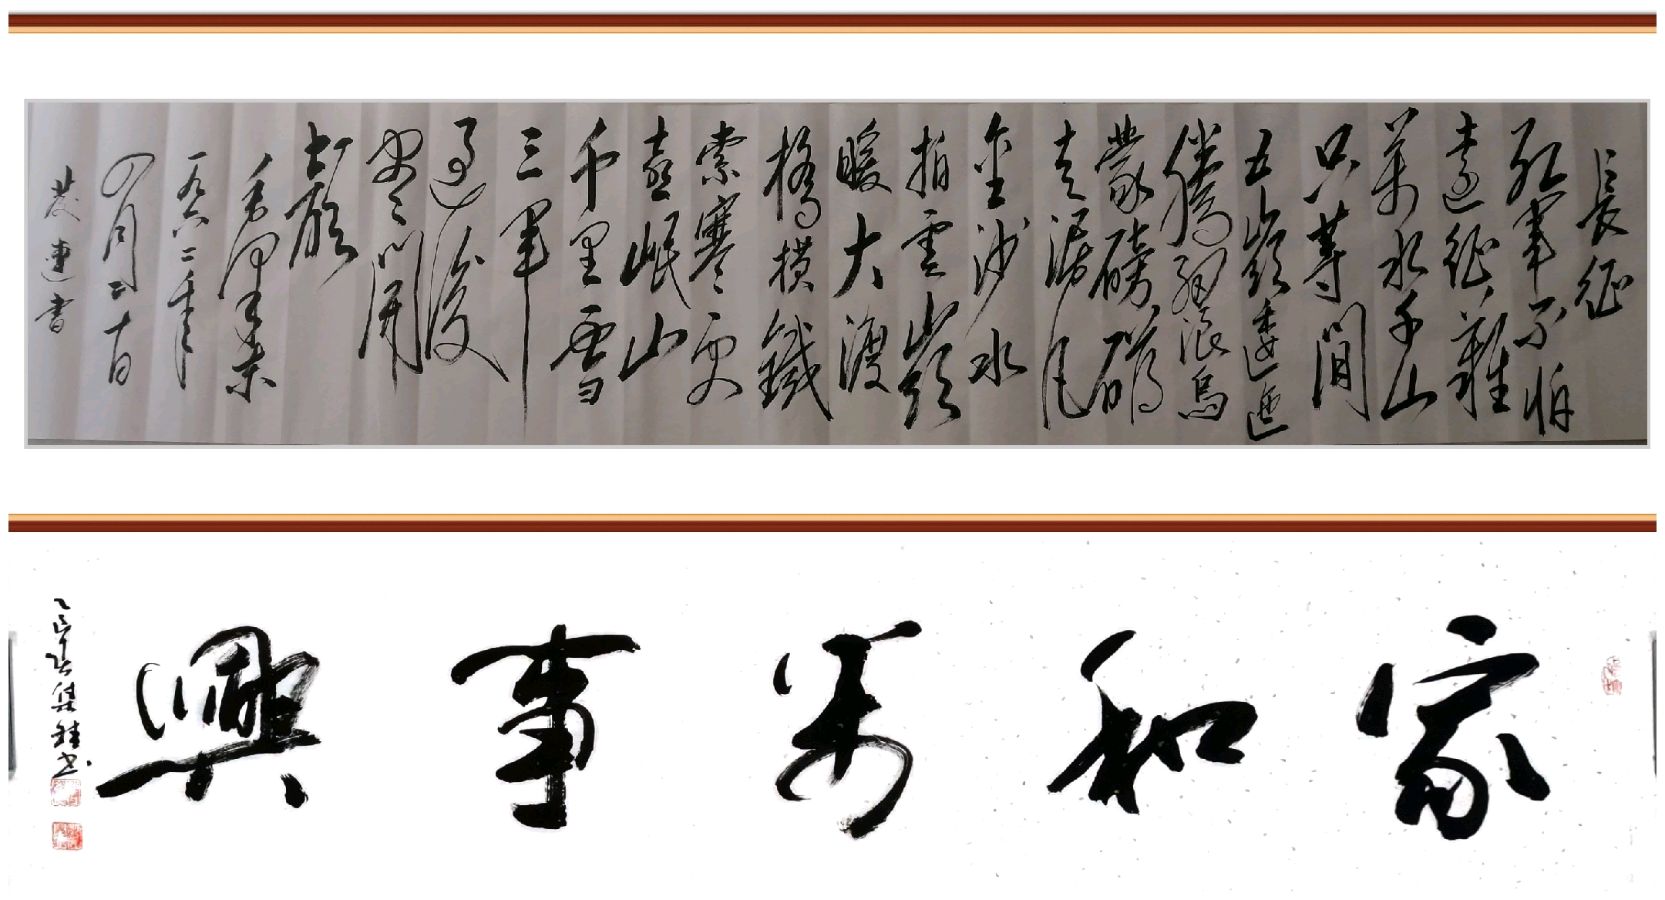 長征
紅軍不怕
遠征難
萬水千山
只等閒
五嶺逶迤
騰細浪烏
蒙磅礴
走泥丸
金沙水
拍雲
暖大渡
橋橫鐵
索寒更
喜岷山
千里雪
三軍
過後
盡開
顏
毛澤東
一九六二年
四月二十日
連書
家和萬事興
乙巳